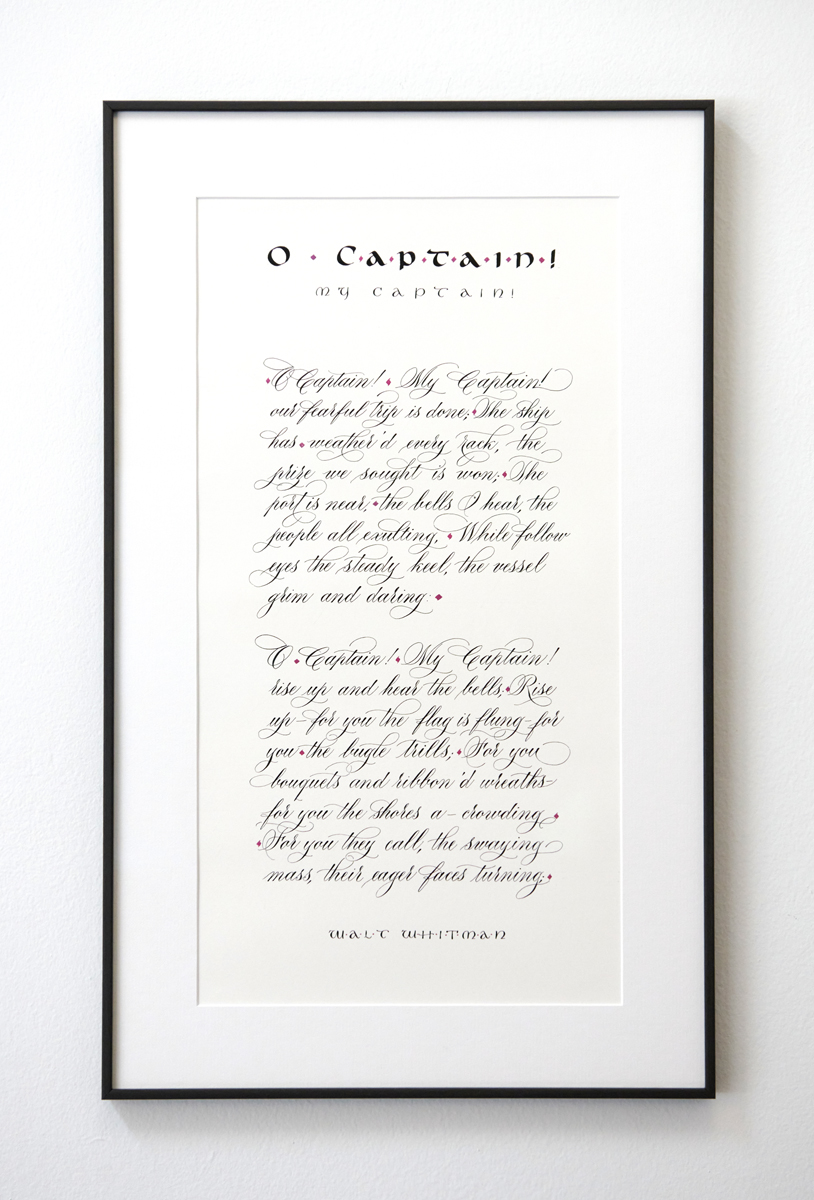 O · Captain!
my captain!
O Captain! My Captain!
our fearful trip is done; The ship
has weather'd every rack, the
prize we sought is won; The
port is near, the bells I hear, the
people all exulting, While follow
eyes the steady keel, the vessel
grim and daring:
O Captain! My Captain!
rise up and hear the bells; Rise
up—for you the flag is flung—for
you the bugle trills; For you
bouquets and ribbon'd wreaths—
for you the shores a-crowding
For you they call, the swaying
mass, their eager faces turning;
Walt Whitman